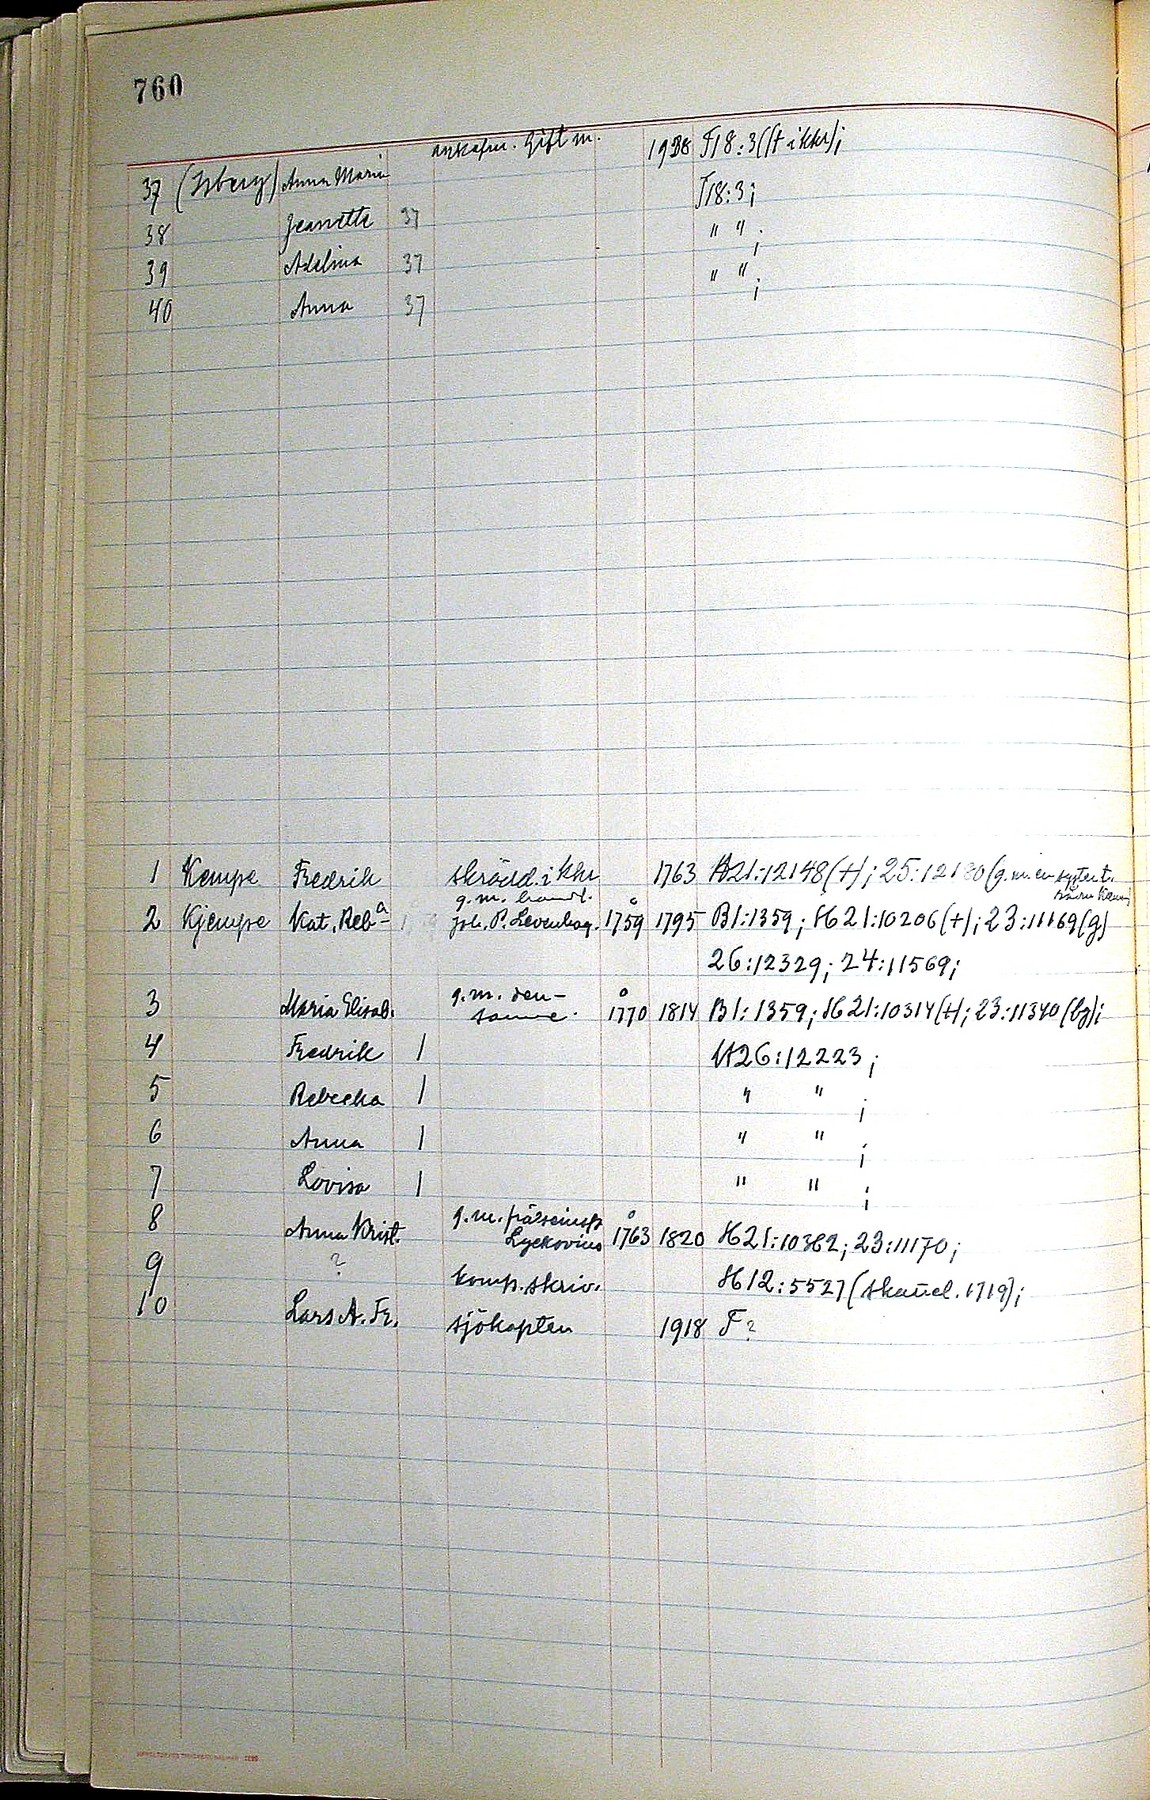 760
37 (Isberg) Anna Maria enkefru. Gift m. 1928 F18:3 († i khr);
38 Jeanette 37 F18:3;
39 Adelina 37 " " ;
40 Anna 37 " " ;
1 Kempe Fredrik skrädd. i khr 1763 H21:12148 (†); 25:12180 (g. m. en syster t.
2 Kjempe Kat. Reb:a g. m. handl. Joh. P. Levenhag. 1759 1795 B1:1359; H21:10206 (†); 23:11169 (g)
26:12329; 24:11569;
3 Maria Elisab. g. m. den- samme. 1770 1814 B1:1359; H21:10314 (†); 23:11340 (bg);
4 Fredrik 1 H26:12223;
5 Rebecka 1 " " ;
6 Anna 1 " " ;
7 Lovisa 1 " " ;
8 Anna Krist. g. m. Lyckovius 1763 1820 H21:10362; 23:11170;
9 ? komp. skriv. H12:5527 (skand. 1719);
10 Lars A. Fr. sjökapten 1918 F?